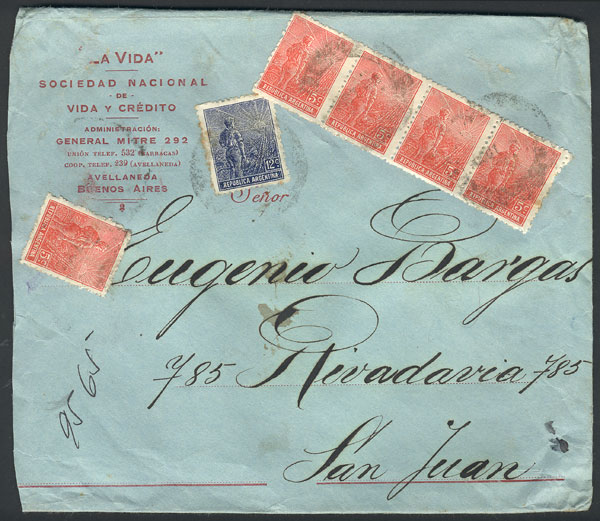 "LA VIDA"
SOCIEDAD NACIONAL
- DE -
VIDA Y CRÉDITO
ADMINISTRACIÓN:
GENERAL MITRE 292
UNIÓN TELEF. 532 (BARRACAS)
COOP. TELEF. 239 (AVELLANEDA)
AVELLANEDA
BUENOS AIRES
5c
REPUBLICA ARGENTINA
5c
REPUBLICA ARGENTINA
5c
REPUBLICA ARGENTINA
5c
REPUBLICA ARGENTINA
12c
REPUBLICA ARGENTINA
5c
REPUBLICA ARGENTINA
Señor
Eugenio Bargas
785 Rivadavia 785
San Juan
95 65